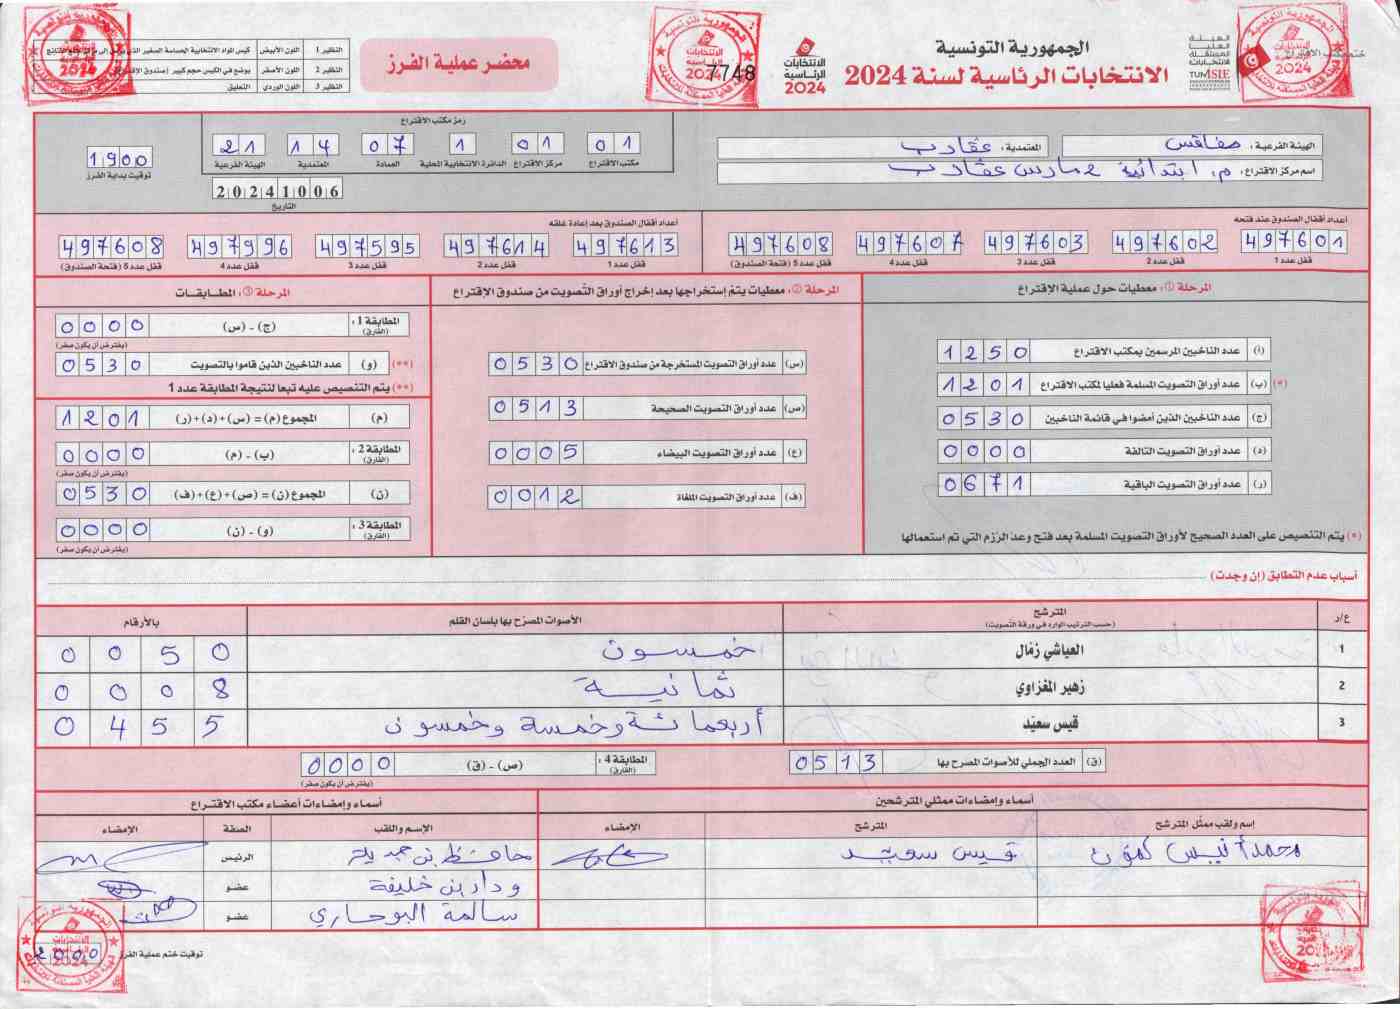 الجمهورية التونسية
الانتخابات الرئاسية لسنة 2024
الهيئة العليا المستقلة للانتخابات
ISIE TUNISIE
الانتخابات الرئاسية 2024
7748
محضر عملية الفرز
النظير 1 اللون الأبيض
النظير 2 اللون الأصفر
النظير 3 اللون الوردي التعليق
الهيئة الفرعية: صفاقس
المعتمدية: عقارب
اسم مركز الاقتراع: م. ابتدائية 2 مارس عقارب
رمز مكتب الاقتراع
01 01 1 07 14 21
مكتب الاقتراع مركز الاقتراع الدائرة الانتخابية المحلية العمادة المعتمدية الهيئة الفرعية
20241006
التاريخ
1900
توقيت بداية الفرز
أعداد أقفال الصندوق عند فتحه
497601 497602 497603 497607 497608
قفل عدد 1 قفل عدد 2 قفل عدد 3 قفل عدد 4 قفل عدد 5 (فتحة الصندوق)
أعداد أقفال الصندوق بعد إعادة غلقه
497613 497614 497595 497996 497608
قفل عدد 1 قفل عدد 2 قفل عدد 3 قفل عدد 4 قفل عدد 5 (فتحة الصندوق)
المرحلة ①: معطيات حول عملية الاقتراع
(أ) عدد الناخبين المرسمين بمكتب الاقتراع 1250
(*) (ب) عدد أوراق التصويت المسلمة فعليا لمكتب الاقتراع 1201
(ج) عدد الناخبين الذين أمضوا في قائمة الناخبين 0530
(د) عدد أوراق التصويت التالفة 0000
(ر) عدد أوراق التصويت الباقية 0671
(*) يتم التنصيص على العدد الصحيح لأوراق التصويت المسلمة بعد فتح وعد الرزم التي تم استعمالها
المرحلة ②: معطيات يتم إستخراجها بعد إخراج أوراق التصويت من صندوق الاقتراع
(س) عدد أوراق التصويت المستخرجة من صندوق الاقتراع 0530
(ص) عدد أوراق التصويت الصحيحة 0513
(ع) عدد أوراق التصويت البيضاء 0005
(ف) عدد أوراق التصويت الملغاة 0012
المرحلة ③: المطابقات
المطابقة 1: (الفارق) (ج) - (س) 0000
(يفترض أن يكون صفر)
(**) (و) عدد الناخبين الذين قاموا بالتصويت 0530
(**) يتم التنصيص عليه تبعا لنتيجة المطابقة عدد 1
(م) المجموع (م) = (س)+(د)+(ر) 1201
المطابقة 2: (الفارق) (ب) - (م) 0000
(يفترض أن يكون صفر)
(ن) المجموع (ن) = (ص)+(ع)+(ف) 0530
المطابقة 3: (الفارق) (و) - (ن) 0000
(يفترض أن يكون صفر)
أسباب عدم التطابق (إن وجدت)
ع/د المترشح (حسب الترتيب الوارد في ورقة التصويت) الأصوات المصرح بها بلسان القلم بالأرقام
1 العياشي زمال خمسون 0050
2 زهير المغزاوي ثمانية 0008
3 قيس سعيد أربعمائة وخمسة وخمسون 0455
(ق) العدد الجملي للأصوات المصرح بها 0513
المطابقة 4: (الفارق) (ص) - (ق) 0000
(يفترض أن يكون صفر)
أسماء وإمضاءات ممثلي المترشحين
إسم ولقب ممثل المترشح المترشح الإمضاء
محمد أنيس كمون قيس سعيد
أسماء وإمضاءات أعضاء مكتب الاقتراع
الإسم واللقب الصفة الإمضاء
حافظ بن حميدة الرئيس
وداد بن خليفة عضو
سالمة البوحاري عضو
توقيت ختم عملية الفرز 2000